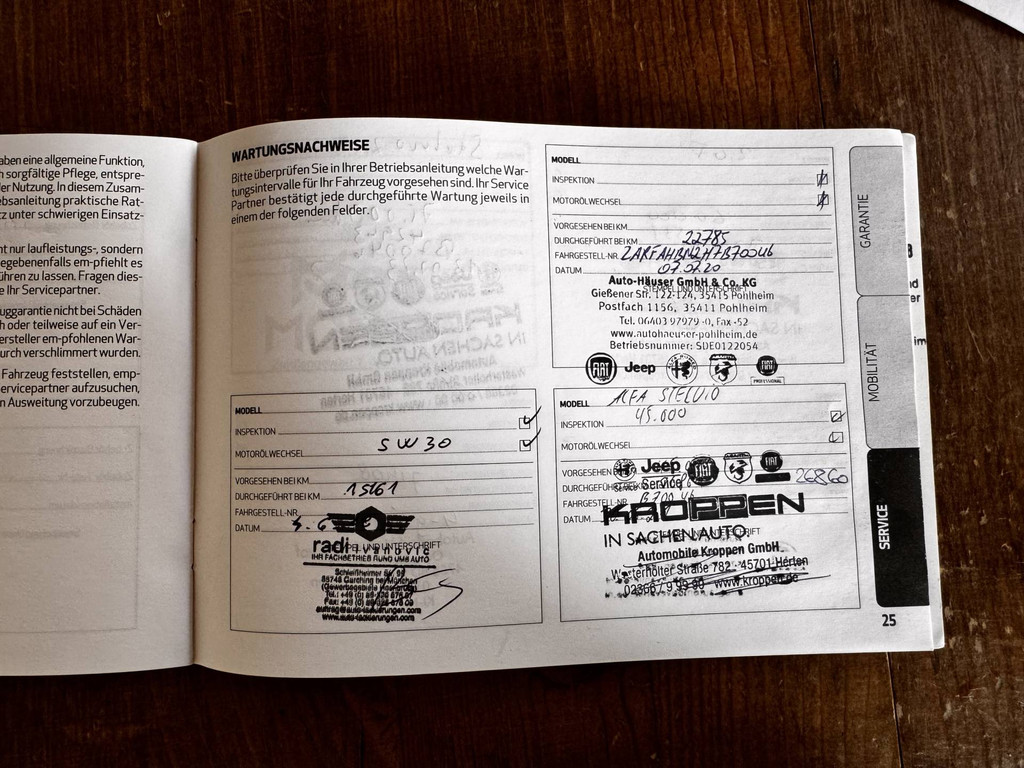 aben eine allgemeine Funktion,
h sorgfältige Pflege, entspre-
der Nutzung. In diesem Zusam-
ebsanleitung praktische Rat-
tz unter schwierigen Einsatz-
ht nur laufleistungs-, sondern
gegebenenfalls em-pfiehlt es
ühren zu lassen. Fragen dies-
e Ihr Servicepartner.
uggarantie nicht bei Schäden
h oder teilweise auf ein Ver-
ersteller em-pfohlenen War-
urch verschlimmert wurden.
Fahrzeug feststellen, emp-
ervicepartner aufzusuchen,
n Ausweitung vorzubeugen.
WARTUNGSNACHWEISE
Bitte überprüfen Sie in Ihrer Betriebsanleitung welche War-
tungsintervalle für Ihr Fahrzeug vorgesehen sind. Ihr Service
Partner bestätigt jede durchgeführte Wartung jeweils in
einem der folgenden Felder.
MODELL
INSPEKTION
MOTORÖLWECHSEL
VORGESEHEN BEI KM
DURCHGEFÜHRT BEI KM 22785
FAHRGESTELL-NR.
DATUM 07.07.20
STEMPEL UND UNTERSCHRIFT
Auto-Häuser GmbH & Co. KG
Gießener Str. 122-124, 35415 Pohlheim
Postfach 1156, 35411 Pohlheim
Tel. 06403 97979 -0, Fax -52
www.autohaeuser-pohlheim.de
Betriebsnummer: SDE0122054
FIAT Jeep
PROFESSIONAL
MODELL
INSPEKTION
MOTORÖLWECHSEL 5W30
VORGESEHEN BEI KM
DURCHGEFÜHRT BEI KM 15161
FAHRGESTELL-NR.
DATUM
radi vanovic
IHR FACHBETRIEB RUND UMS AUTO
MODELL ALFA STELVIO
INSPEKTION 45.000
MOTORÖLWECHSEL
VORGESEHEN
Jeep FIAT
Service
26860
FAHRGESTELL-NR.
DATUM
KROPPEN
IN SACHEN AUTO
Automobile Kroppen GmbH
Westerholter Straße 782 · 45701 Herten
www.kroppen.de
GARANTIE
MOBILITÄT
SERVICE
25